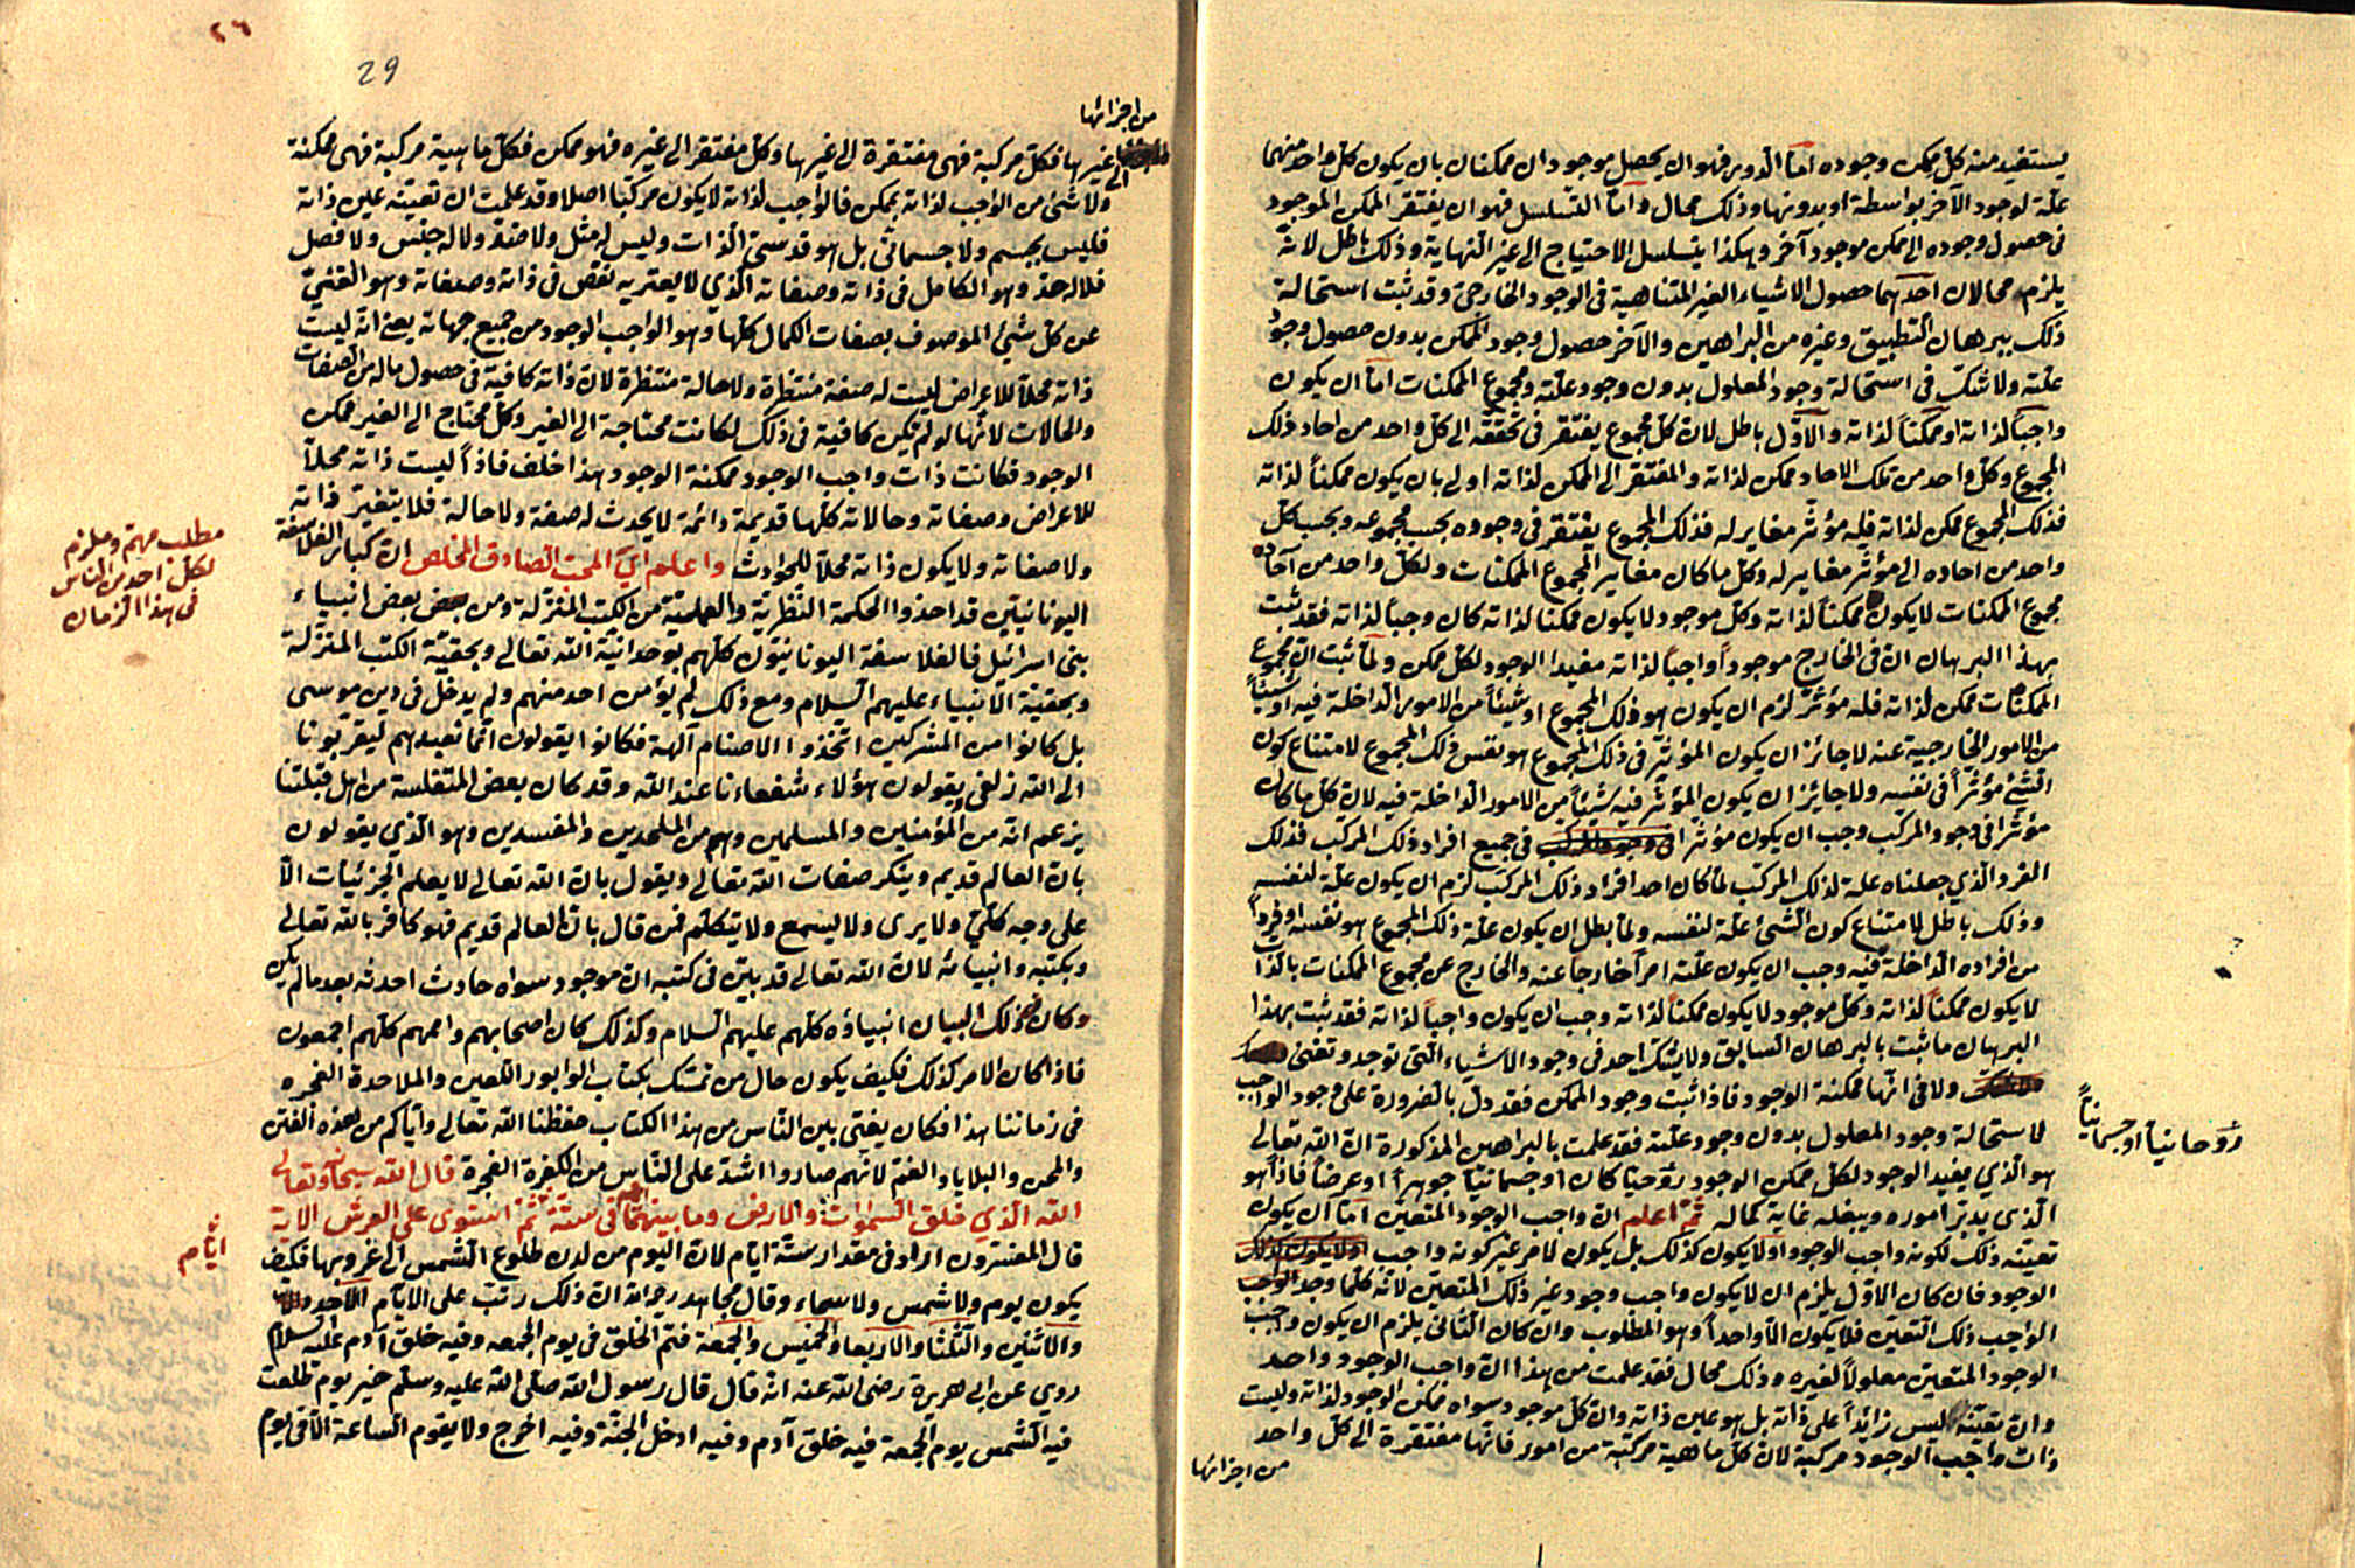 يستفيد منه كل ممكن وجوده اما الدور فهو ان يحصل موجودان ممكنان بان يكون كل واحد منهما
علة لوجود الآخر بواسطة او بدونها وذلك محال واما التسلسل فهو ان يفتقر الممكن الموجود
فى حصول وجوده الى ممكن موجود آخر وهكذا يتسلسل الاحتياج الى غير النهاية وذلك باطل لانه
يلزم محالان احدهما حصول الاشياء الغير المتناهية فى الوجود الخارجى وقد ثبت استحالة
ذلك ببرهان التطبيق وغيره من البراهين والآخر حصول وجود الممكن بدون حصول وجود
علته ولا شك فى استحالة وجود المعلول بدون وجود علته ومجموع الممكنات اما ان يكون
واجباً لذاته او ممكناً لذاته والاول باطل لان كل مجموع يفتقر فى تحققه الى كل واحد من احاد ذلك
المجموع وكل واحد من تلك الاحاد ممكن لذاته والمفتقر الى الممكن لذاته اولى بان يكون ممكناً لذاته
فذلك المجموع ممكن لذاته فله مؤثر مغاير له فذلك المجموع يفتقر فى وجوده بحسب مجموعه وبحسب كل
واحد من احاده الى مؤثر مغاير له وكل ما كان مغاير المجموع الممكنات ولكل واحد من آحاده
مجموع الممكنات لا يكون ممكناً لذاته وكل موجود لا يكون ممكنا لذاته كان وجباً لذاته فقد ثبت
بهذا البرهان ان فى الخارج موجوداً واجباً لذاته مفيدا الوجود لكل ممكن ولما ثبت ان مجموع
الممكنات ممكن لذاته فله مؤثر لزم ان يكون هو ذلك المجموع او شيئاً من الامور الداخلة فيه او شيئاً
من الامور الخارجية عنه لا جائز ان يكون المؤثر فى ذلك المجموع هو نفس ذلك المجموع لامتناع كون
الشئ مؤثراً فى نفسه ولا جايز ان يكون المؤثر فيه شيئاً من الامور الداخلة فيه لان كل ما كان
مؤثرا فى وجود المركب وجب ان يكون مؤثرا فى جميع افراد ذلك المركب فذلك
الفرد الذي جعلناه علة لذلك المركب لما كان احد افراد ذلك المركب لزم ان يكون علة لنفسه
وذلك باطل لامتناع كون الشئ علة لنفسه ولما بطل ان يكون علة ذلك المجموع هو نفسه او فرداً
من افراده الداخلة فيه وجب ان يكون علته امراً خارجا عنه والخارج عن مجموع الممكنات بالذات
لا يكون ممكناً لذاته وكل موجود لا يكون ممكناً لذاته وجب ان يكون واجباً لذاته فقد ثبت بهذا
البرهان ما ثبت بالبرهان السابق ولا يشك احد فى وجود الاشياء التى توجد وتفنى
ولا فى انها ممكنة الوجود فاذا ثبت وجود الممكن فقد دل بالضرورة على وجود الواجب
روحانياً او جسمانياً
لاستحالة وجود المعلول بدون وجود علته فقد علمت بالبراهين المذكورة ان الله تعالى
هو الذي يفيد الوجود لكل ممكن الوجود روحيا كان او جسمانيّا جوهراً او عرضاً فاذاً هو
الذى يدبر اموره ويبغله غاية كماله ثم اعلم ان واجب الوجود المتعين اما ان يكون
تعينه ذلك لكونه واجب الوجود اولا يكون كذلك بل يكون لامر غير كونه واجب
الوجود فان كان الاول يلزم ان لا يكون واجب وجود غير ذلك المتعين لانه كلما وجد الوجب
الواجب ذلك التعين فلا يكون الا واحداً وهو المطلوب وان كان الثانى يلزم ان يكون واجب
الوجود المتعين معلولاً لغيره وذلك محال فقد علمت من هذا ان واجب الوجود واحد
وان تعينه ليس زائداً على ذاته بل هو عين ذاته وان كل موجود سواه ممكن الوجود لذاته وليست
ذات واجب الوجود مركبة لان كل ماهية مركبة من امور فانها مفتقرة الى كل واحد
من اجزائها
٢٦
29
من اجزائها
الى غيرها فكل مركبة فهى مفتقرة الى غيرها وكل مفتقر الى غيره فهو ممكن فكل ماهية مركبة فهى ممكنة
ولا شئ من الواجب لذاته بممكن فالواجب لذاته لا يكون مركبا اصلا وقد علمت ان تعينه عين ذاته
فليس بجسم ولا جسمانى بل هو قدسى الذات وليس له مثل ولا ضد ولا له جنس ولا فصل
فلا له حد وهو الكامل فى ذاته وصفاته الذي لا يعتريه نقص فى ذاته وصفاته وهو الغنىّ
عن كل شئ الموصوف بصفات الكمال كلها وهو الواجب الوجود من جميع جهاته يعنى انه ليست
ذاته محلاً للاعراض ليست له صفة منتظرة ولا حالة منتظرة لان ذاته كافية فى حصول ماله من الصفات
والحالات لانها لو لم تكن كافية فى ذلك لكانت محتاجة الى الغير وكل محتاج الى الغير ممكن
الوجود فكانت ذات واجب الوجود ممكنة الوجود هذا خلف فاذاً ليست ذاته محلاً
للاعراض وصفاته وحالاته كلها قديمة دائمة لا يحدث له صفة ولا حالة فلا يتغير ذاته
ولا صفاته ولا يكون ذاته محلاً للحوادث واعلم ايّ المحب الصادق المخلص ان كبار الفلاسفة
مطلب مهم وملزم
لكل احد من الناس
فى هذا الزمان
اليونانيين قد اخذوا الحكمة النظرية والعملية من الكتب المنزلة ومن بعض انبياء
بنى اسرائيل فالفلاسفة اليونانيون كلهم بوحدانية الله تعالى وبحقية الكتب المنزلة
وبحقية الانبياء عليهم السلام ومع ذلك لم يؤمن احد منهم ولم يدخل فى دين موسى
بل كانوا من المشركين اتخذوا الاصنام آلهة فكانوا يقولون انما نعبدهم ليقربونا
الى الله زلفى ويقولون هؤلاء شفعاءنا عند الله وقد كان بعض المتفلسة من اهل قبلتنا
يزعم انه من المؤمنين والمسلمين وهو من الملحدين والمفسدين وهو الذي يقولون
بان العالم قديم وينكر صفات الله تعالى ويقول بان الله تعالى لا يعلم الجزئيات الا
على وجه كلي ولا يرى ولا يسمع ولا يتكلم فمن قال بان العالم قديم فهو كافر بالله تعالى
وبكتبه وانبيائه لان الله تعالى قد بين فى كتبه ان موجود سواه حادث احدثه بعد ما لم يكن
وكان ذلك البيان انبياؤه كلهم عليهم السلام وكذلك كان اصحابهم واممهم كلهم اجمعون
فاذا كان الامر كذلك فكيف يكون حال من تمسك بكتاب الوابور اللعين والملاحدة الفجره
فى زماننا هذا فكان يفتى بين الناس من هذا الكتاب حفظنا الله تعالى واياكم من هذه الفتن
والمحن والبلايا والغم لانهم صاروا اشد على الناس من الكفرة الفجرة قال الله سبحانه وتعالى
الله الذي خلق السموات والارض وما بينهما فى ستة ثم استوى على العرش الاية
ايام
قال المفسرون اراد فى مقدار ستة ايام لان اليوم من لدن طلوع الشمس الى غروبها فكيف
يكون يوم ولا شمس ولا سماء وقال مجاهد رحمه الله ان ذلك رتب على الايام الاحد
والاثنين والثلثا والاربعا والخميس والجمعة فتم الخلق فى يوم الجمعه وفيه خلق آدم عليه السلام
روى عن ابى هريرة رضى الله عنه انه قال قال رسول الله صلى الله عليه وسلم خير يوم طلعت
فيه الشمس يوم الجمعة فيه خلق آدم وفيه ادخل الجنة وفيه اخرج ولا يقوم الساعة الا فى يوم